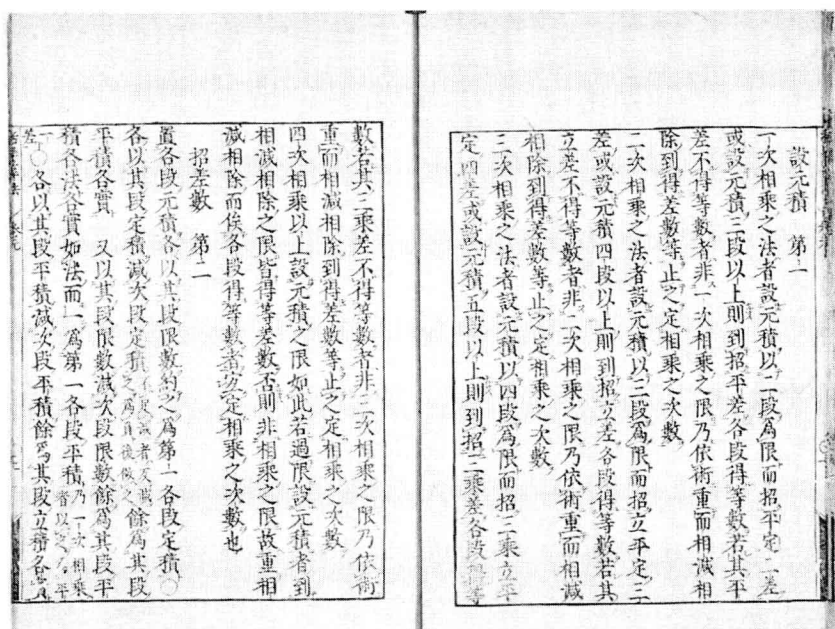 設元積　第一
一次相乘之法者設元積以二段爲限而招平定二差
或設元積三段以上則到招平差各段得等數若其平
差不得等數者非一次相乘之限乃依術重而相減相
除到得差數等止之定相乘之次數
二次相乘之法者設元積以三段爲限而招立平定三
差或設元積四段以上則到招立差各段得等數若其
立差不得等數者非二次相乘之限乃依術重而相減
相除到得差數等止之定相乘之次數
三次相乘之法者設元積以四段爲限而招三乘立平
定四差或設元積五段以上則到招三乘差各段得等
數若其三乘差不得等數者非三次相乘之限乃依術
重而相減相除到得差數等止之定相乘之次數
四次相乘以上設元積之限如此若過限設元積者到
相減相除之限皆得等差數否則非相乘之限故重相
減相除而俟各段得等數者乃定相乘之次數也
招差數　第二
置各段元積各以其段限數約之爲第一各段定積〇
各以其段定積減次段定積餘爲其段
平積各實　又以其段限數減次段限數餘爲其段平
積各法各實如法而一爲第一各段平積乃一次相乘者以之
〇各以其段平積減次段平積餘爲其段立積各實